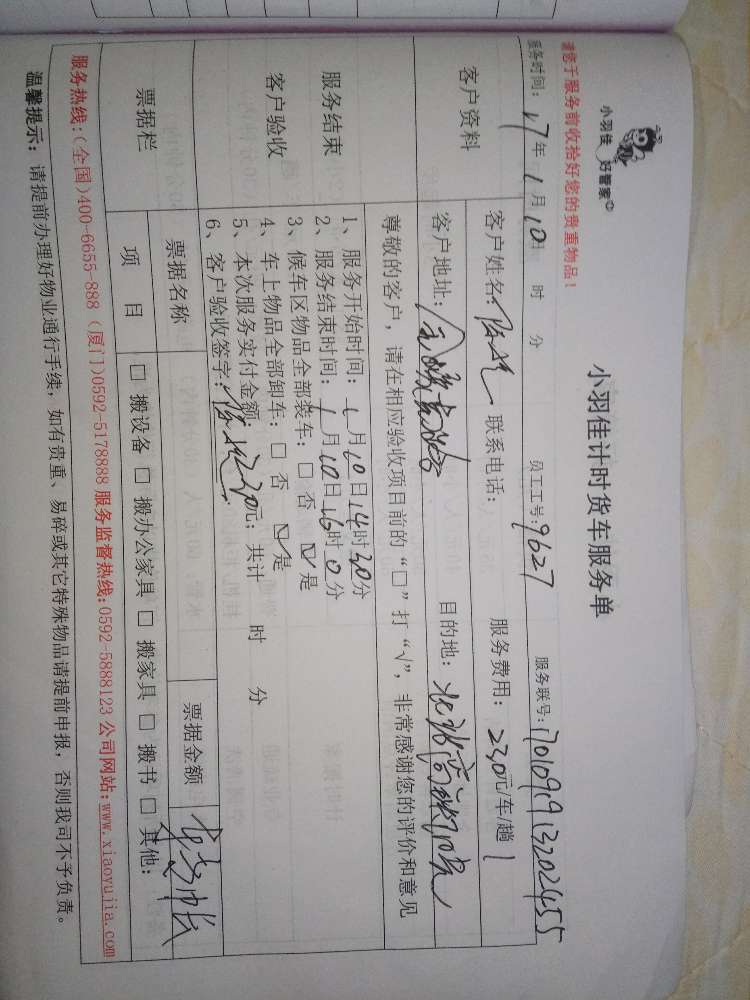 小羽佳 好管家
小羽佳计时货车服务单
请您于服务前收拾好您的贵重物品！
服务时间：17年1月10日 时 分 员工工号：9627 服务联号：
客户资料
客户姓名： 联系电话： 服务费用：230元/车/趟
客户地址： 目的地：
尊敬的客户，请在相应验收项目前的“□”打“√”，非常感谢您的评价和意见
服务结束
客户验收
1、服务开始时间：1月10日14时30分
2、服务结束时间：1月10日16时0分
3、候车区物品全部装车：□ 否 ☑ 是
4、车上物品全部卸车：□ 否 ☑ 是
5、本次服务实付金额：230元；共计 时 分
6、客户验收签字：
票据栏
票据名称 票据金额
项 目 □ 搬设备 □ 搬办公家具 □ 搬家具 □ 搬书 □ 其他：
服务热线：(全国)400-6655-888 (厦门)0592-5178888 服务监督热线：0592-5888123 公司网站：www.xiaoyujia.com
温馨提示：请提前办理好物业通行手续，如有贵重、易碎或其它特殊物品请提前申报，否则我司不予负责。